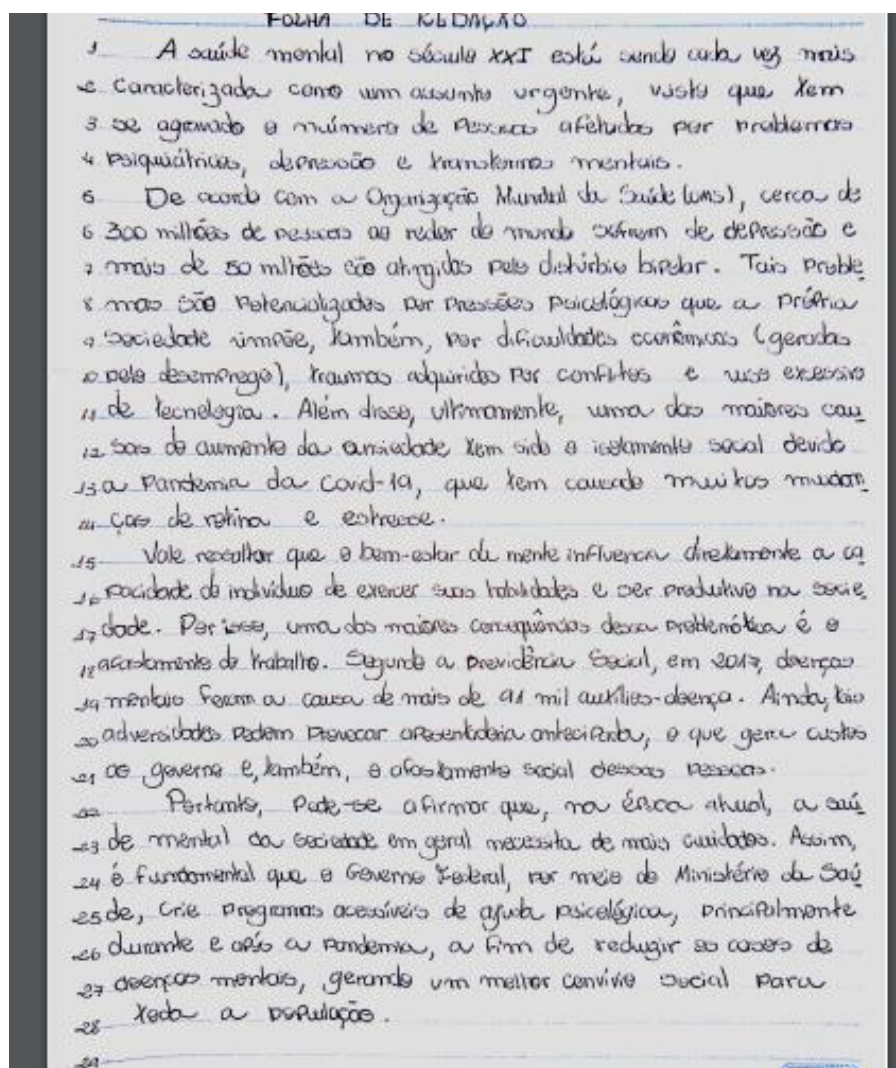 FOLHA DE REDAÇÃO
1 A saúde mental no século XXI está sendo cada vez mais
2 caracterizada como um assunto urgente, visto que tem
3 se agravado o número de pessoas afetadas por problemas
4 psiquiátricos, depressão e transtornos mentais.
5 De acordo com a Organização Mundial da Saúde (OMS), cerca de
6 300 milhões de pessoas ao redor do mundo sofrem de depressão e
7 mais de 50 milhões são atingidas pelo distúrbio bipolar. Tais proble
8 mas são potencializados por pressões psicológicas que a própria
9 sociedade impõe, também, por dificuldades econômicas (geradas
10 pelo desemprego), traumas adquiridos por conflitos e uso excessivo
11 de tecnologia. Além disso, ultimamente, uma das maiores cau
12 sas do aumento da ansiedade tem sido o isolamento social devido
13 a Pandemia da Covid-19, que tem causado muitas mudan
14 ças de rotina e estresse.
15 Vale ressaltar que o bem-estar da mente influencia diretamente a ca
16 pacidade do indivíduo de exercer suas habilidades e ser produtivo na socie
17 dade. Por isso, uma das maiores consequências dessa problemática é o
18 afastamento do trabalho. Segundo a Previdência Social, em 2017, doenças
19 mentais foram a causa de mais de 91 mil auxílios-doença. Ainda, tais
20 adversidades podem provocar aposentadoria antecipada, o que gera custos
21 ao governo e, também, o afastamento social dessas pessoas.
22 Portanto, pode-se afirmar que, na época atual, a saú
23 de mental da sociedade em geral necessita de mais cuidados. Assim,
24 é fundamental que o Governo Federal, por meio do Ministério da Saú
25 de, crie programas acessíveis de ajuda psicológica, principalmente
26 durante e após a pandemia, a fim de reduzir os casos de
27 doenças mentais, gerando um melhor convívio social para
28 toda a população.
29